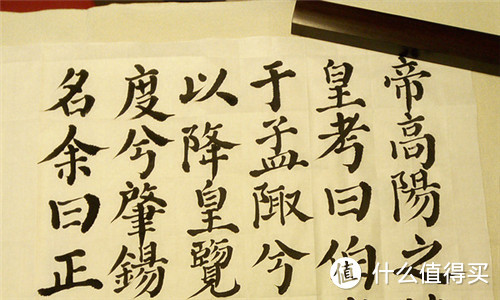 帝高陽之
皇考曰伯
于孟陬兮
以降皇覽
度兮肇錫
名余曰正
值 什么值得买